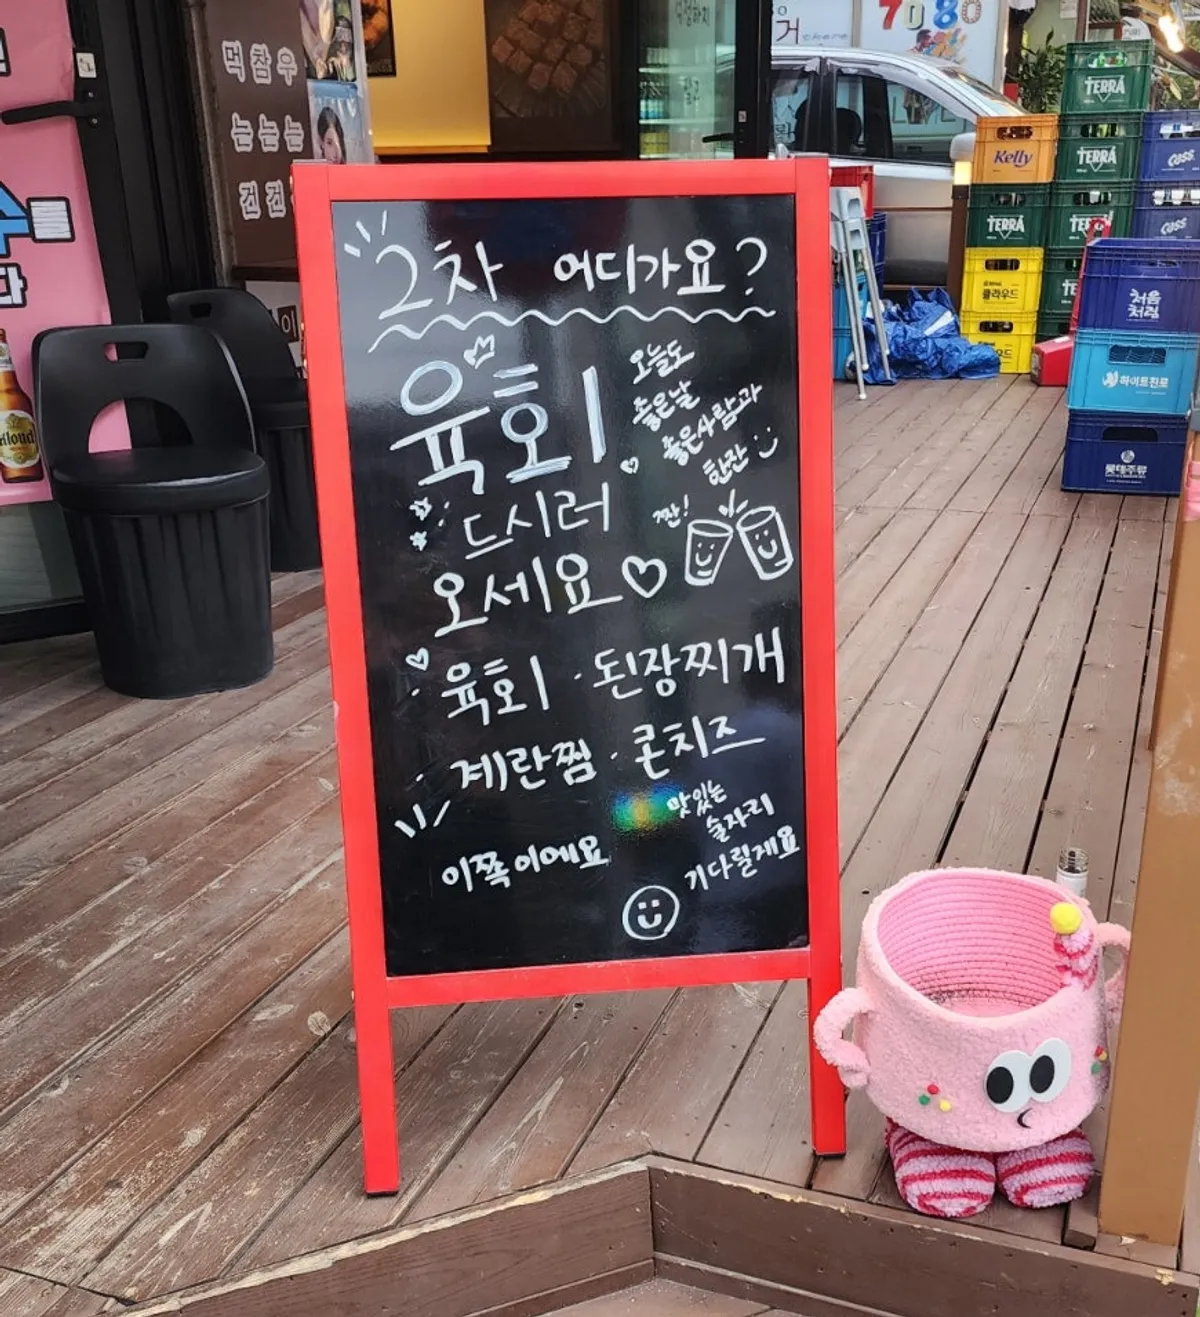 2차 어디가요?
육회
드시러
오세요♡
오늘도
좋은날
좋은사람과
한잔
짠!
· 육회 · 된장찌개
· 계란찜 · 콘치즈
이쪽이에요
맛있는
술자리
기다릴게요
먹참우
는는는
건건
거
there
7080
TERRA
Kelly
TERRA
Cass
TERRA
TERRA
Cass
클라우드
처음
처럼
하이트진로
롯데주류